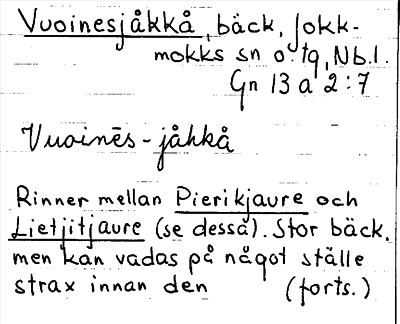 Vuoinesjåkkå, bäck, Jokk-
mokks sn o. tg, Nb. l.
Gn 13 a 2:7
Vuoinēs-jåhkå
Rinner mellan Pierikjaure och
Lietjitjaure (se dessa). Stor bäck,
men kan vadas på något ställe
strax innan den (forts.)